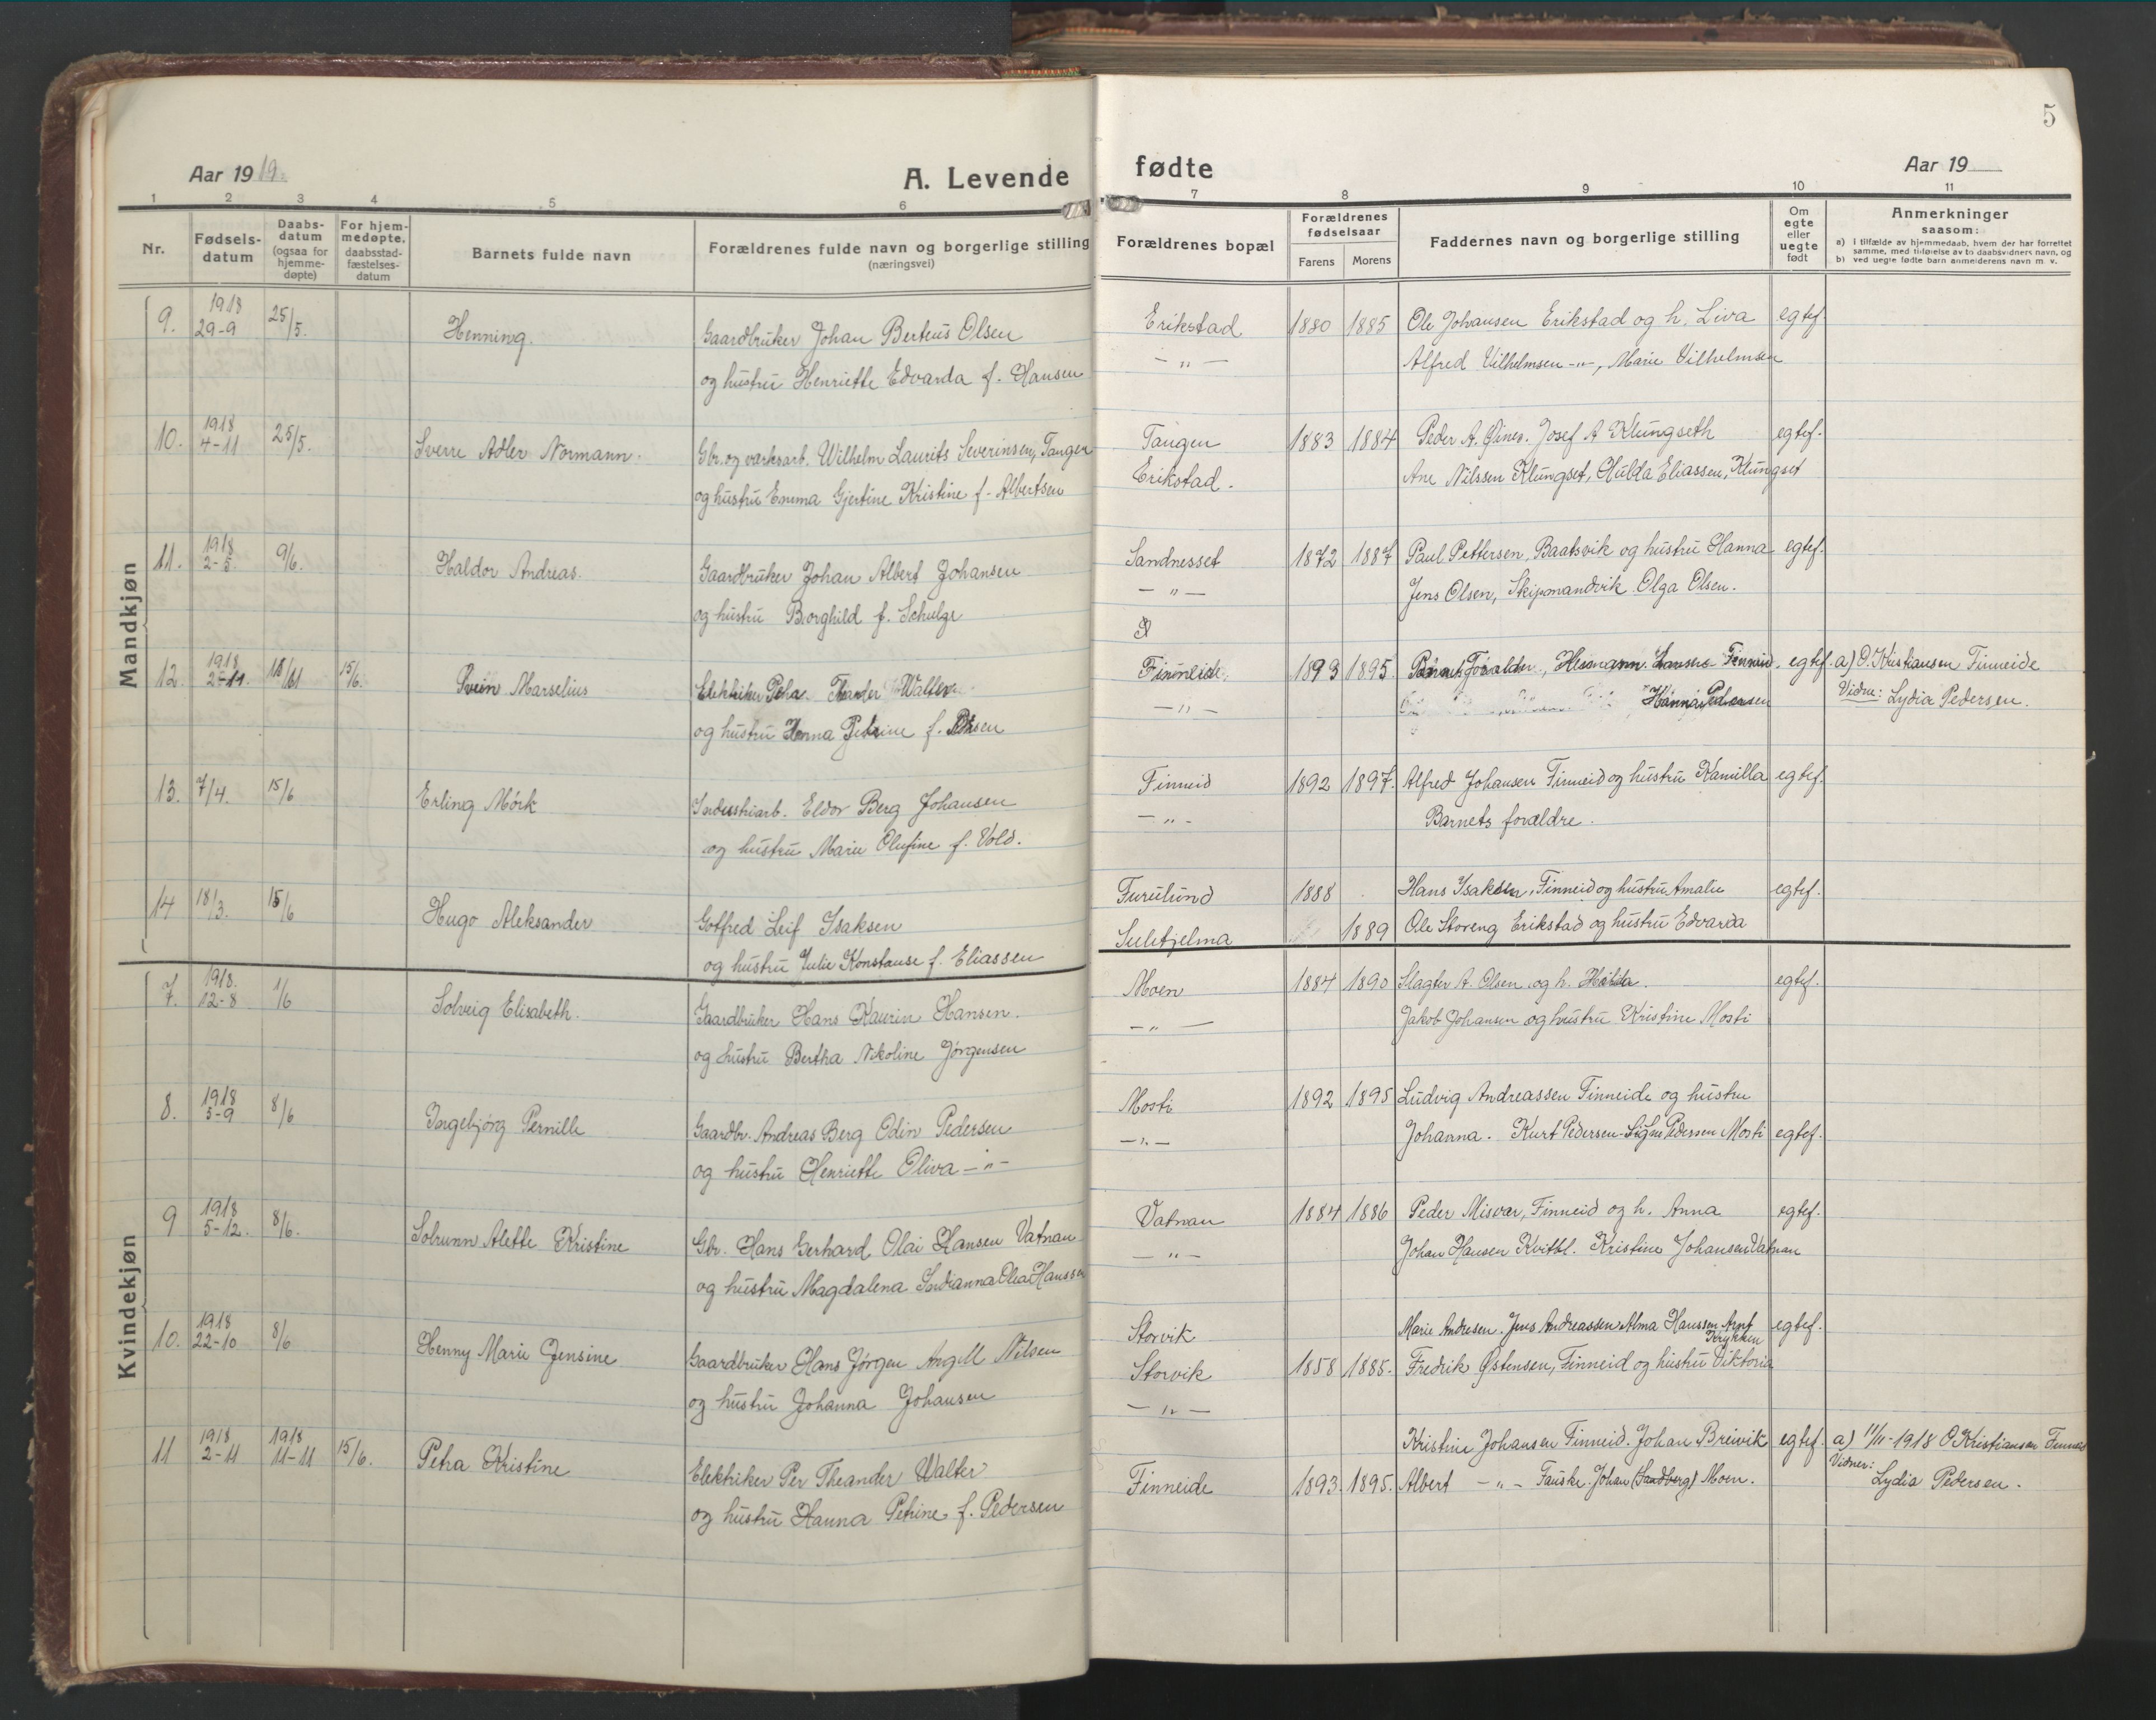 5
Aar 1919.
A. Levende
fødte
Aar 19
1 2 3 4 5 6 7 8 9 10 11
Nr.
Fødsels-
datum
Daabs-
datum
(ogsaa for
hjemme-
døpte)
For hjem-
medøpte,
daabsstad-
fæstelses-
datum
Barnets fulde navn
Forældrenes fulde navn og borgerlige stilling
(næringsvei)
Forældrenes bopæl
Forældrenes
fødselsaar
Farens
Morens
Faddernes navn og borgerlige stilling
Om
egte
eller
uegte
født
Anmerkninger
saasom:
a) i tilfælde av hjemmedaab, hvem der har forrettet
samme, med tilføielse av to daabsvidners navn, og
b) ved uegte fødte barn anmelderens navn m. v.
Mandkjøn
9. 1918 29-9 25/5. Henning. Gaardbruker Johan Berteus Olsen Erikstad 1880 1885 Ole Johansen Erikstad og h. Liva egtef.
og hustru Henriette Edvarda f. Hansen — " — Alfred Vilhelmsen -"-, Marie Vilhelmsen
10. 1918 4-11 25/5. Sverre Adler Normann. Gbr. og verksarb. Wilhelm Laurits Severinsen, Tangen Tangen 1883 1884 Peder A. Øines. Josef A Klungseth egtef.
og hustru Emma Gjertine Kristine f. Albertsen Erikstad. Ane Nilssen Klungset, Hulda Eliassen, Klungset
11. 1918 2-5. 9/6. Haldor Andreas. Gaardbruker Johan Albert Johansen Sandnesset 1872 1887 Paul Pettersen, Baatsvik og hustru Hanna egtef.
og hustru Borghild f. Schulze — " — Jens Olsen, Skipmandvik. Olga Olsen.
12. 1918 2-11. 15/6. Svein Marselius Elektriker Theander Walter Finneide 1893 1895 Hermann Finneid. egtef. a) O. Kristiansen Finneide
og hustru Hanna Petrine f. — " — Hanna Pedersen Vidne: Lydia Pedersen.
13. 7/4. 15/6 Erling Mörk Industriarb. Eldor Berg Johansen Finneid 1892 1897. Alfred Johansen Finneid og hustru Kamilla egtef.
og hustru Marie Olufine f. Vold. — " — Barnets forældre.
14 18/3. 15/6 Hugo Aleksander Gotfred Leif Isaksen Furulund 1888 Hans Isaksen, Finneid og hustru Amalie egtef.
og hustru Julie Konstanse f. Eliassen Sulitjelma 1889 Ole Storeng Erikstad og hustru Edvarda
Kvindekjøn
7. 1918. 12-8 1/6 Solveig Elisabeth. Gaardbruker Hans Kaurin Hansen. Moen 1884 1890 Slagter A. Olsen og h. egtef.
og hustru Bertha Nikoline Jørgensen — " — Jakob Johansen og hustru Kristine Mosti
8. 1918 5-9 8/6 Ingebjørg Pernille Gaardbr. Andreas Berg Odin Pedersen Mosti 1892 1895 Ludvig Andreassen Finneide og hustru
og hustru Henriette Oliva — " — — " — Johanna. Kurt Pedersen - Signe Pedersen Mosti egtef.
9 1918 5-12. 8/6. Solrunn Alette Kristine Gbr. Hans Gerhard Olai Hansen Vatnan Vatnan 1884 1886 Peder Misvær, Finneid og h. Anna egtef.
og hustru Magdalena Indianna Olea Hanssen — " — Johan Hansen Kvitbl. Kristine Johansen Vatnan
10. 1918 22-10 8/6 Henny Marie Jensine Gaardbruker Hans Jørgen Angell Nilsen Storvik Marie Andresen. Jens Andreassen Alma Hanssen egtef.
og hustru Johanna Johansen Storvik 1858 1885. Fredrik Østensen, Finneid og hustru Viktoria
— " —
11 1918 2-11 1918 11-11 15/6. Petra Kristine Elektriker Per Theander Walter Kristine Johansen Finneid. Johan Breivik egtef. a) 11/11-1918 O Kristiansen Finneid
og hustru Hanna Petrine f. Pedersen Finneide 1893. 1895. Albert — " — Fauske. Johan (Sandberg) Moen. Vidner: Lydia Pedersen.